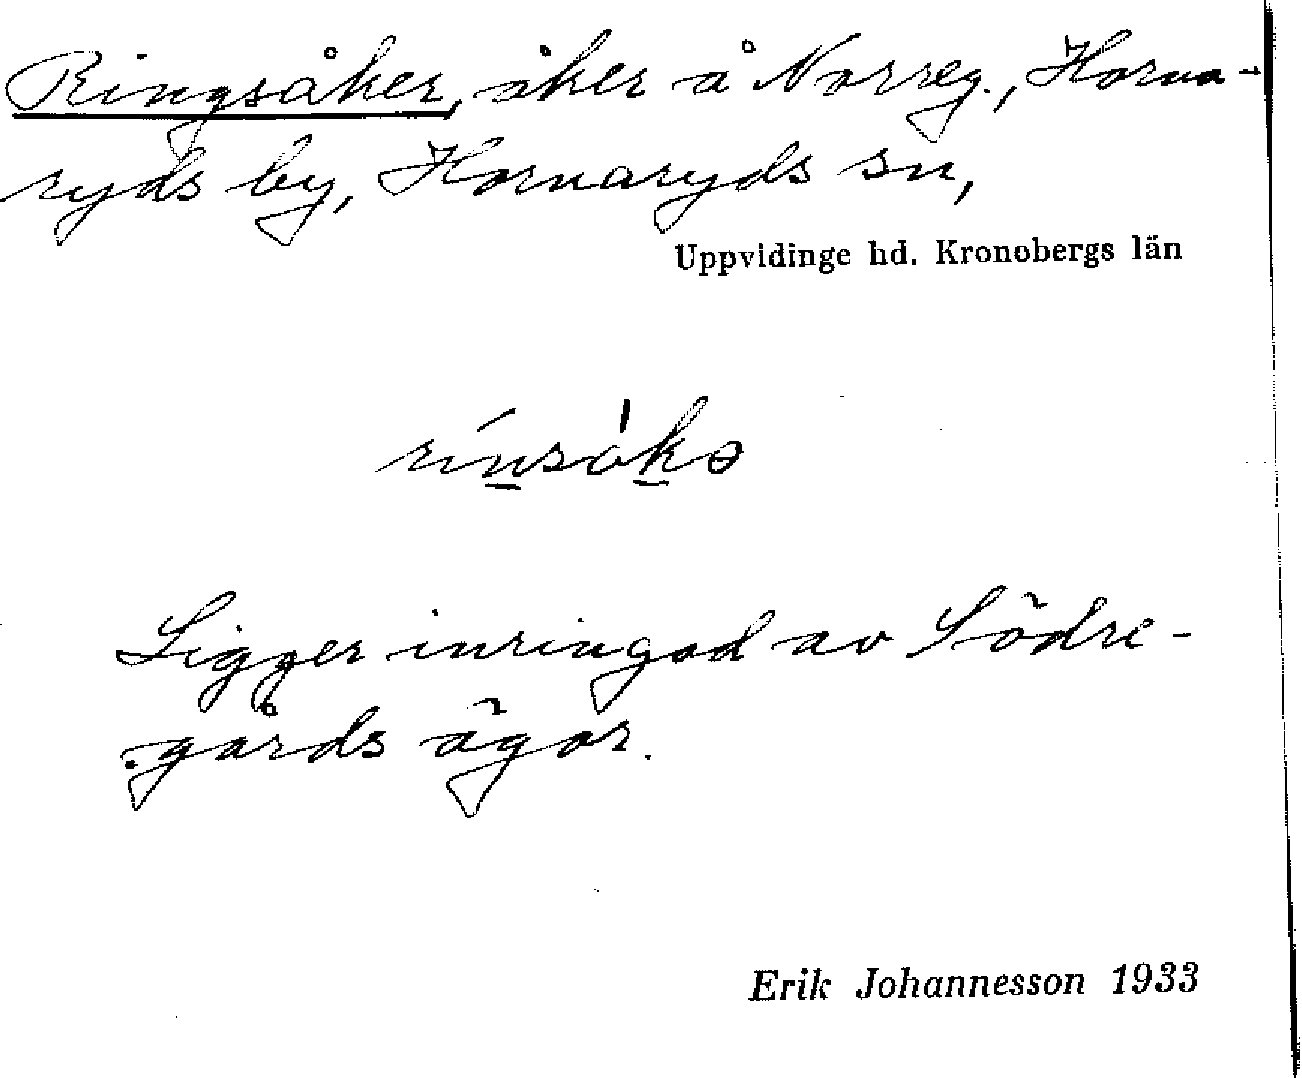 Ringsåker, åker å Norreg., Horna-
ryds by, Hornaryds sn,
Uppvidinge hd. Kronobergs län
rínsåkə
Ligger inringad av Södre-
gårds ägor.
Erik Johannesson 1933